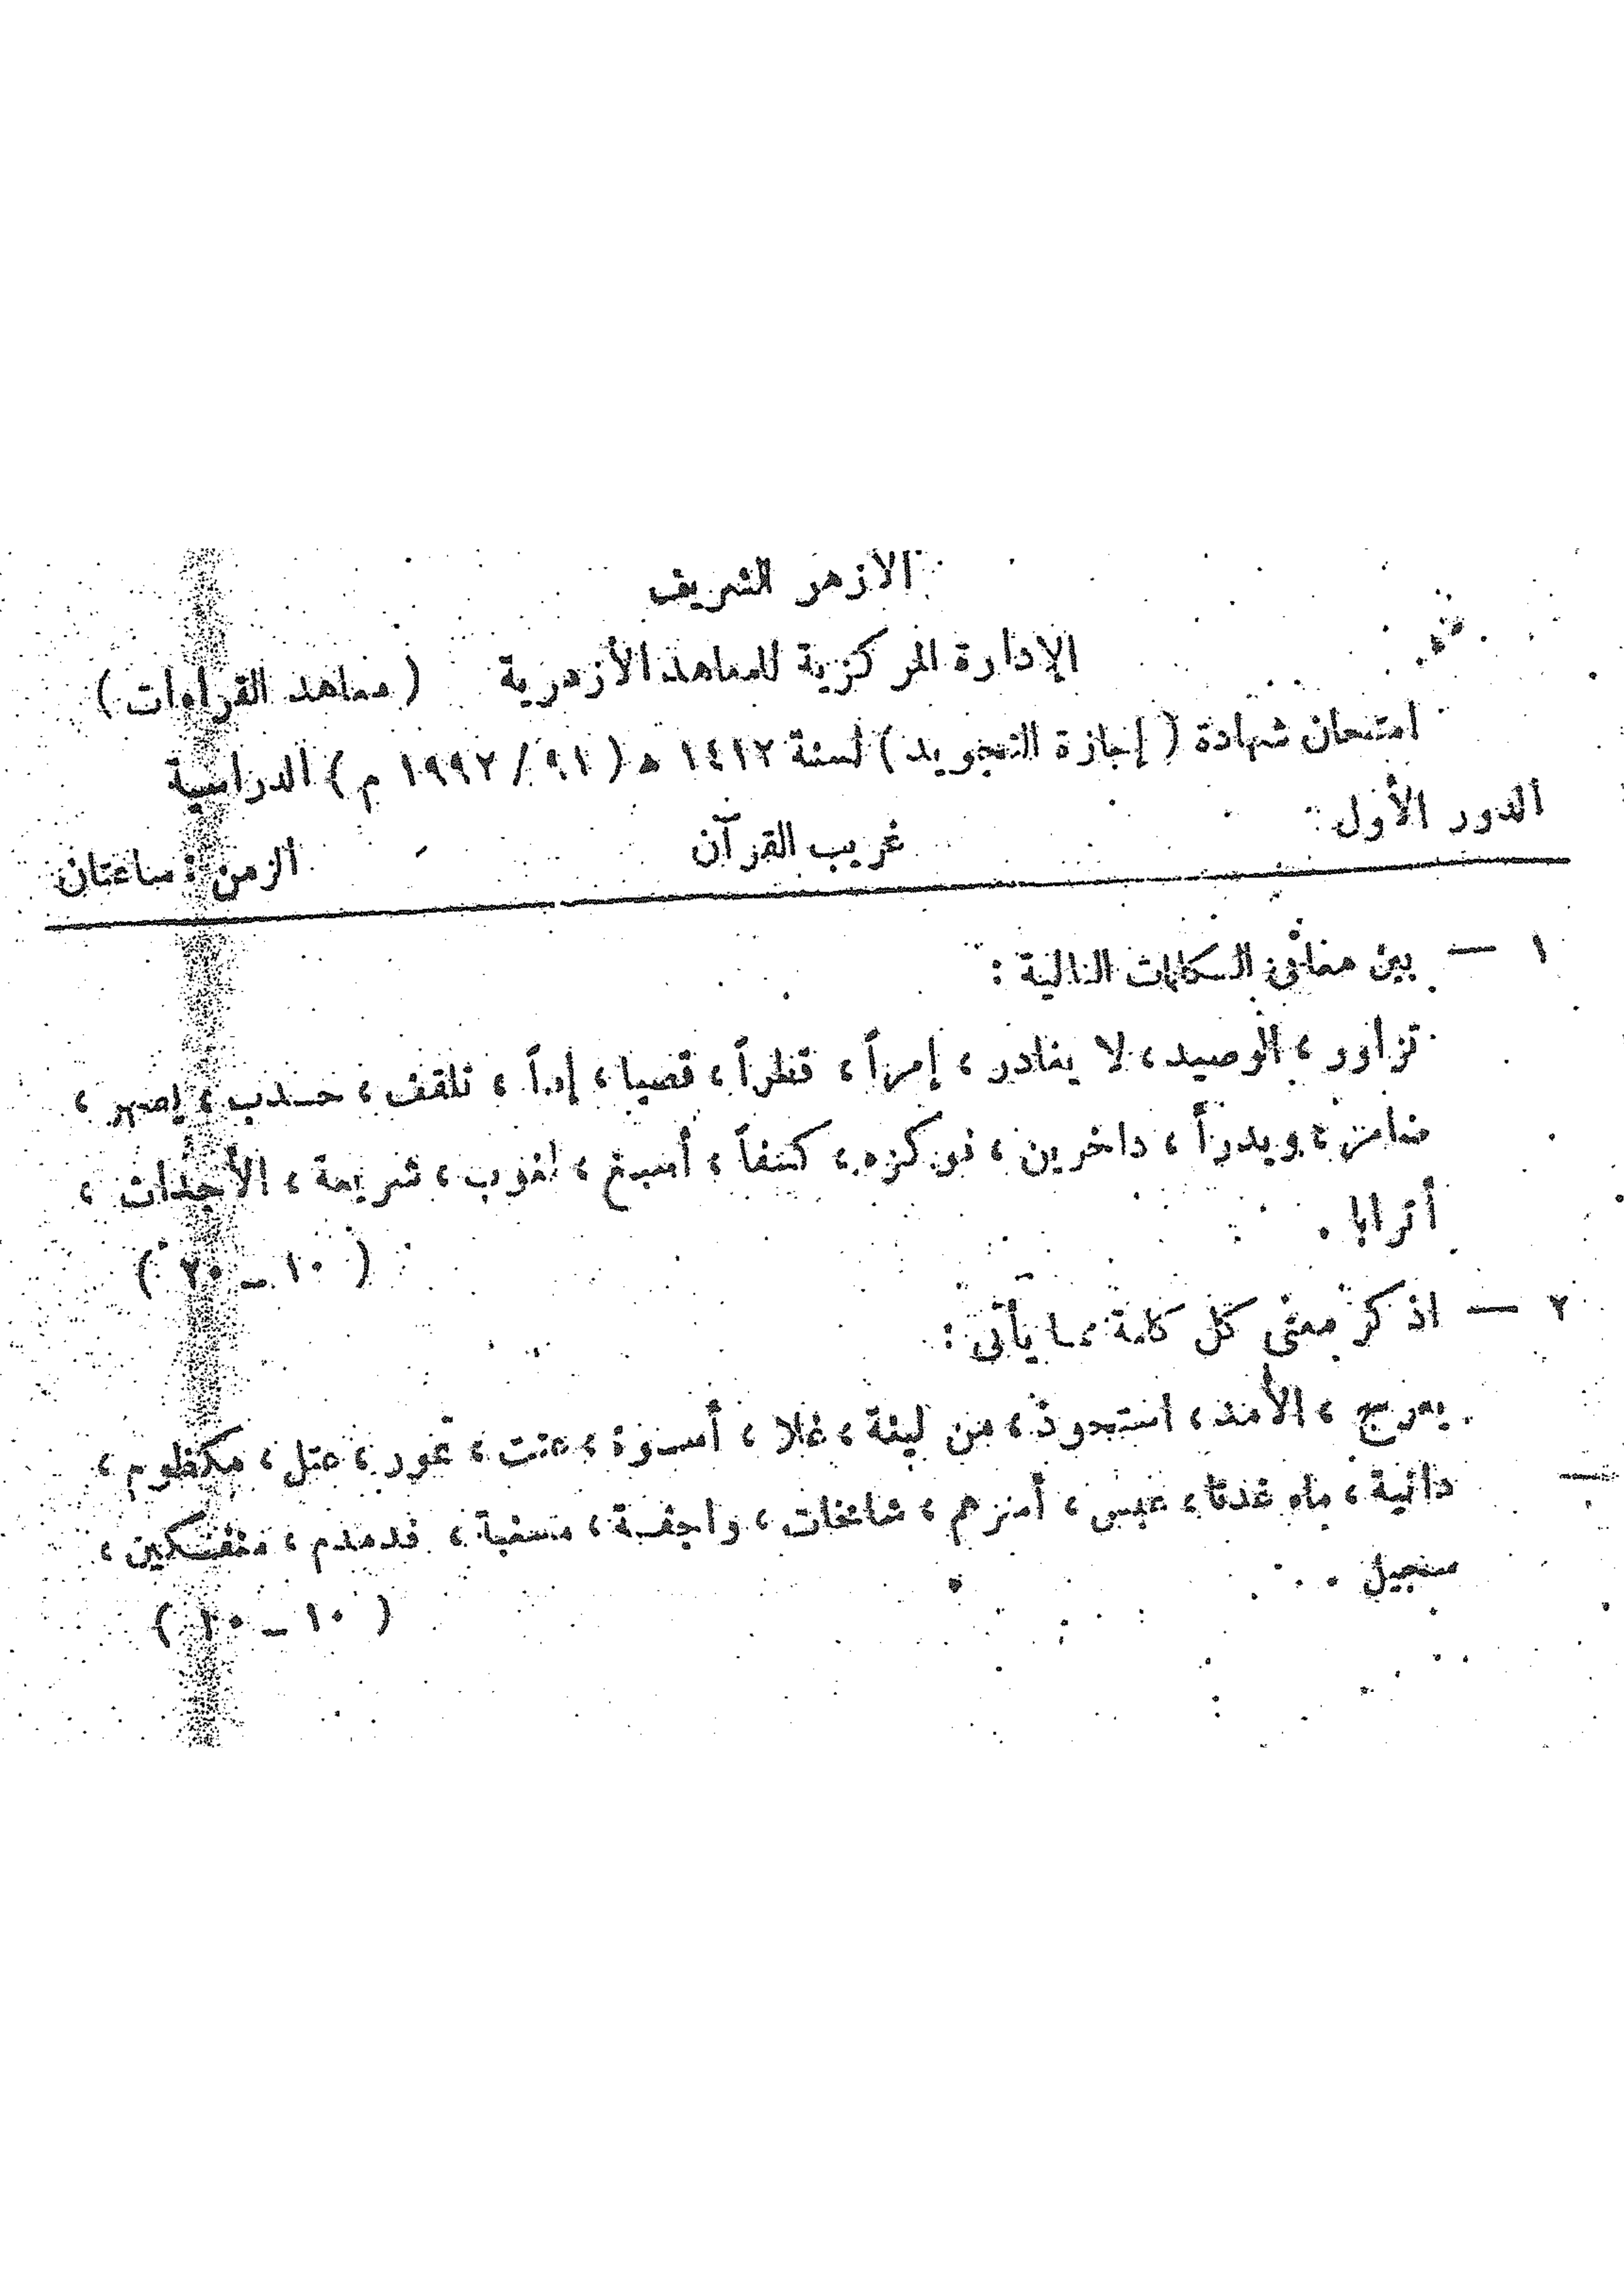 الأزهر الشريف
الإدارة المركزية للمعاهد الأزهرية ( معاهد القراءات )
امتحان شهادة ( إجازة التجويد ) لسنة ١٤١٢ هـ ( ٩١ / ١٩٩٢ م ) الدراسية
الدور الأول غريب القرآن الزمن : ساعتان
١ — بين معانى الكلمات التالية :
تزاور ، الوصيد ، لا يغادر ، إمراً ، قطراً ، قصيا ، إداً ، تلقف ، حدب ، يصهر ،
ضامر ، ويدرأ ، داخرين ، فوكزه ، كسفاً ، أسبغ ، لغوب ، شريعة ، الأجداث ،
أترابا .
( ١٠ ــ ٢٠ )
٢ — اذكر معنى كل كلمة مما يأتى :
يعرج ، الأمد ، استحوذ ، من لينة ، غلا ، أسوة ، عتت ، تمور ، عتل ، مكظوم ،
دانية ، ماء غدقا ، عبس ، أسرهم ، شامخات ، واجفة ، مسغبة ، فدمدم ، منفكين ،
سجيل .
( ١٠ ــ ١٠ )